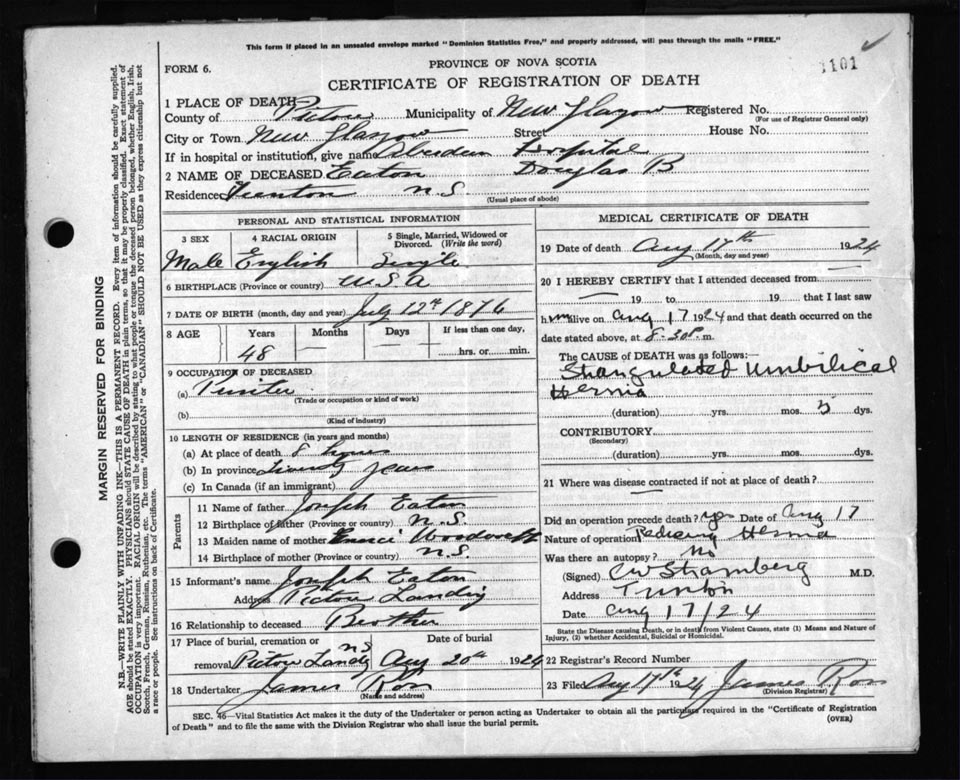 This form if placed in an unsealed envelope marked "Dominion Statistics Free," and properly addressed, will pass through the mails "FREE."
1101
FORM 6.
PROVINCE OF NOVA SCOTIA
CERTIFICATE OF REGISTRATION OF DEATH
1 PLACE OF DEATH—
County of Pictou Municipality of New Glasgow Registered No.
(For use of Registrar General only)
City or Town New Glasgow Street House No.
If in hospital or institution, give name Aberdeen Hospital
2 NAME OF DECEASED Eaton Douglas B
Residence Trenton N.S.
(Usual place of abode)
PERSONAL AND STATISTICAL INFORMATION
3 SEX 4 RACIAL ORIGIN 5 Single, Married, Widowed or Divorced. (Write the word)
Male English Single
6 BIRTHPLACE (Province or country) U.S.A
7 DATE OF BIRTH (month, day and year) July 12th 1876
8 AGE Years Months Days If less than one day,
48 — — hrs. or min.
9 OCCUPATION OF DECEASED
(a)
(Trade or occupation or kind of work)
(b)
(Kind of industry)
10 LENGTH OF RESIDENCE (in years and months)
(a) At place of death 8 hours
(b) In province Twenty years
(c) In Canada (if an immigrant)
Parents
11 Name of father Joseph Eaton
12 Birthplace of father (Province or country) N.S.
13 Maiden name of mother
14 Birthplace of mother (Province or country) N.S.
15 Informant's name Joseph Eaton
Address Pictou Landing
16 Relationship to deceased Brother
17 Place of burial, cremation or Date of burial
removal Pictou Landg N S Aug 20th 1924
18 Undertaker James Ross
(Name and address)
MEDICAL CERTIFICATE OF DEATH
19 Date of death Aug 17th 1924
(Month, day and year)
20 I HEREBY CERTIFY that I attended deceased from
— 19 to 19 — that I last saw
him alive on Aug 17 1924 and that death occurred on the
date stated above, at 8-30 P.m.
The CAUSE OF DEATH was as follows:
Strangulated Umbilical
Hernia
(duration) yrs. mos. 3 dys.
CONTRIBUTORY
(Secondary)
(duration) yrs. mos. dys.
21 Where was disease contracted if not at place of death?
Did an operation precede death? yes Date of Aug 17
Nature of operation Reducing Hernia
Was there an autopsy? No
(Signed) M.D.
Address Trenton
Date Aug 17/24
State the Disease causing Death, or in death from Violent Causes, state (1) Means and Nature of
Injury, (2) whether Accidental, Suicidal or Homicidal.
22 Registrar's Record Number
23 Filed Aug 17th 1924 James Ross
(Division Registrar)
SEC. 46—Vital Statistics Act makes it the duty of the Undertaker or person acting as Undertaker to obtain all the particulars required in the "Certificate of Registration
of Death" and to file the same with the Division Registrar who shall issue the burial permit.
(OVER)
MARGIN RESERVED FOR BINDING
N.B.—WRITE PLAINLY WITH UNFADING INK—THIS IS A PERMANENT RECORD. Every item of information should be carefully supplied.
AGE should be stated EXACTLY. PHYSICIANS should STATE CAUSE OF DEATH in plain terms, so that it may be properly classified. Exact statement of
OCCUPATION is very important. RACIAL ORIGIN will be described by stating to what people or tongue the deceased person belonged, whether English, Irish,
Scotch, French, German, Russian, Ruthenian, etc. The terms "AMERICAN" or "CANADIAN" SHOULD NOT BE USED as they express citizenship but not
a race or people. See instructions on back of Certificate.